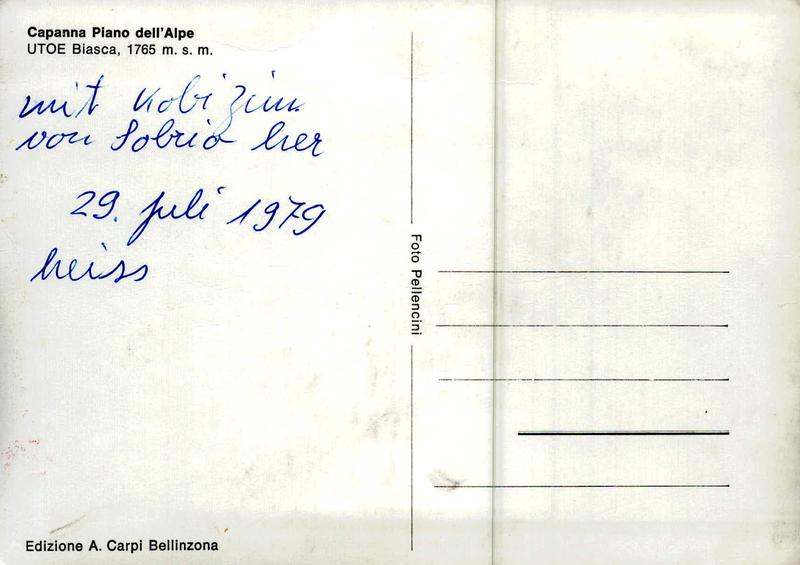 Capanna Piano dell'Alpe
UTOE Biasca, 1765 m. s. m.
mit Kobi Zim.
von Sobrio her
29. Juli 1979
heiss
Foto Pellencini
Edizione A. Carpi Bellinzona